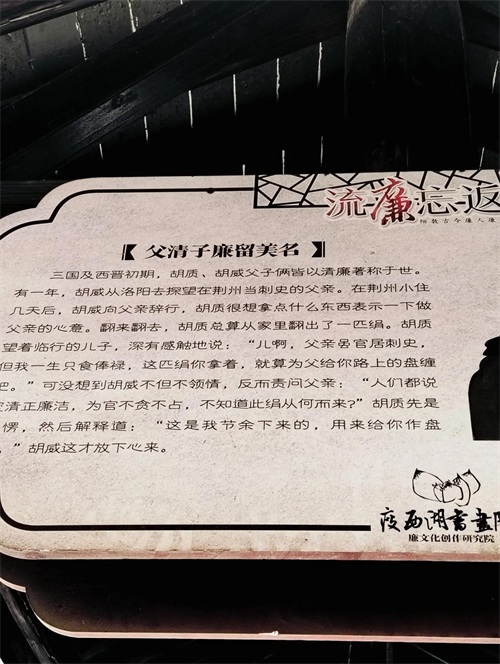 流廉忘返
【 父清子廉留美名 】
三国及西晋初期，胡质、胡威父子俩皆以清廉著称于世。
有一年，胡威从洛阳去探望在荆州当刺史的父亲。在荆州小住
几天后，胡威向父亲辞行，胡质很想拿点什么东西表示一下做
父亲的心意。翻来翻去，胡质总算从家里翻出了一匹绢。胡质
望着临行的儿子，深有感触地说：“儿啊，父亲虽官居刺史，
但我一生只食俸禄，这匹绢你拿着，就算为父给你路上的盘缠
吧。”可没想到胡威不但不领情，反而责问父亲：“人们都说
清正廉洁，为官不贪不占，不知道此绢从何而来?”胡质先是
愣，然后解释道：“这是我节余下来的，用来给你作盘
。”胡威这才放下心来。
瘦西湖书画院
廉文化创作研究院